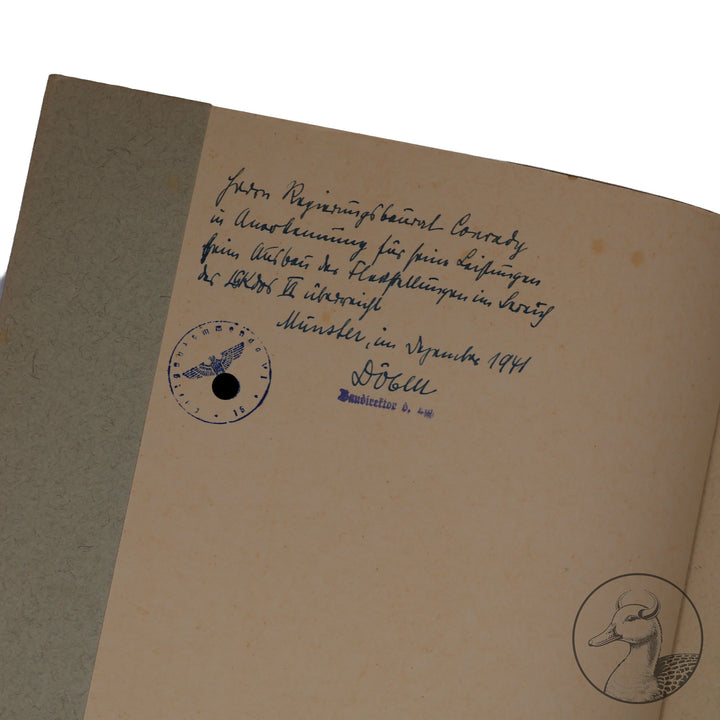 Herrn Regierungsbaurat Conrady
in Anerkennung für seine Leistungen
beim Ausbau der Flakstellungen im Bereich
des LGKdos VI überreicht
Münster, im Dezember 1941
Baudirektor d. Lw
Luftgaukommando VI